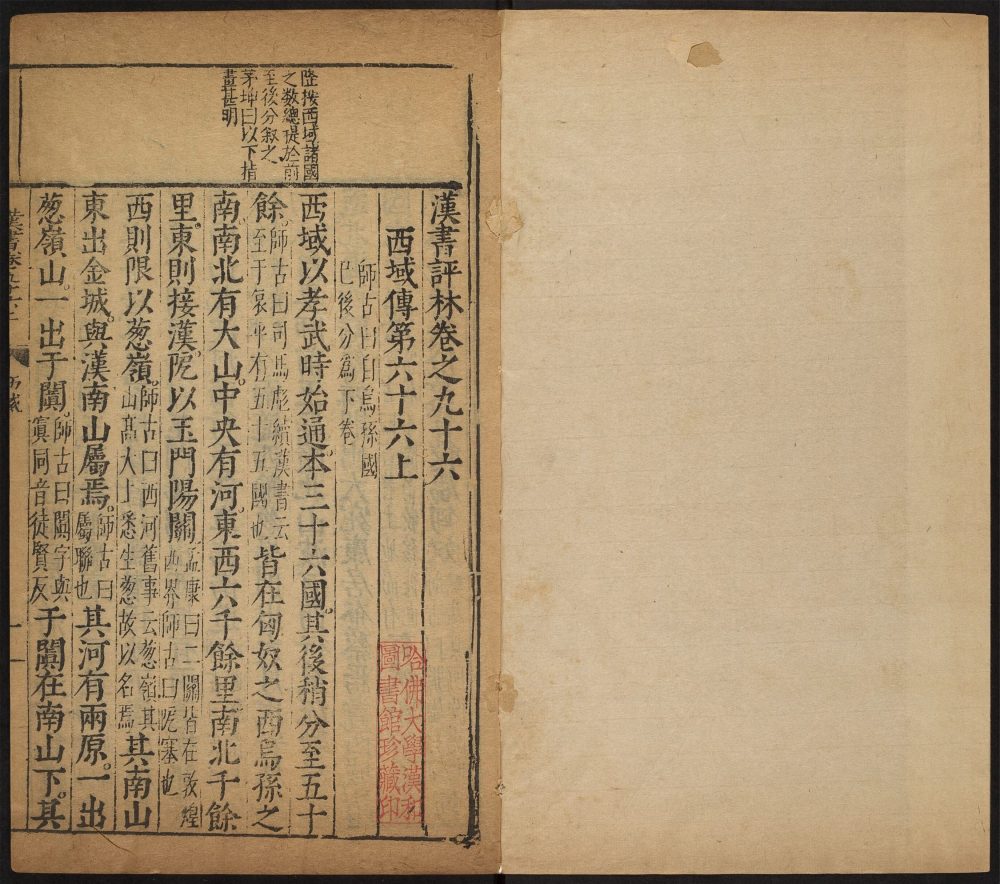 陸按西域諸國
之數總提於前
至後分叙之
茅坤曰以下指
畫甚明
漢書評林卷之九十六
西域傳第六十六上
師古曰自烏孫國
已後分爲下卷
西域以孝武時始通本三十六國其後稍分至五十
餘師古曰司馬彪續漢書云
至于哀平有五十五國也皆在匈奴之西烏孫之
南南北有大山中央有河東西六千餘里南北千餘
里東則接漢阸以玉門陽關孟康曰二關皆在敦煌
西界師古曰阸塞也
西則限以葱嶺師古曰西河舊事云葱嶺其
山高大上悉生葱故以名焉其南山
東出金城與漢南山屬焉師古曰
屬聯也其河有兩原一出
葱嶺山一出于闐師古曰闐字與
寘同音徒賢反于闐在南山下其
哈佛大學漢和
圖書館珍藏印